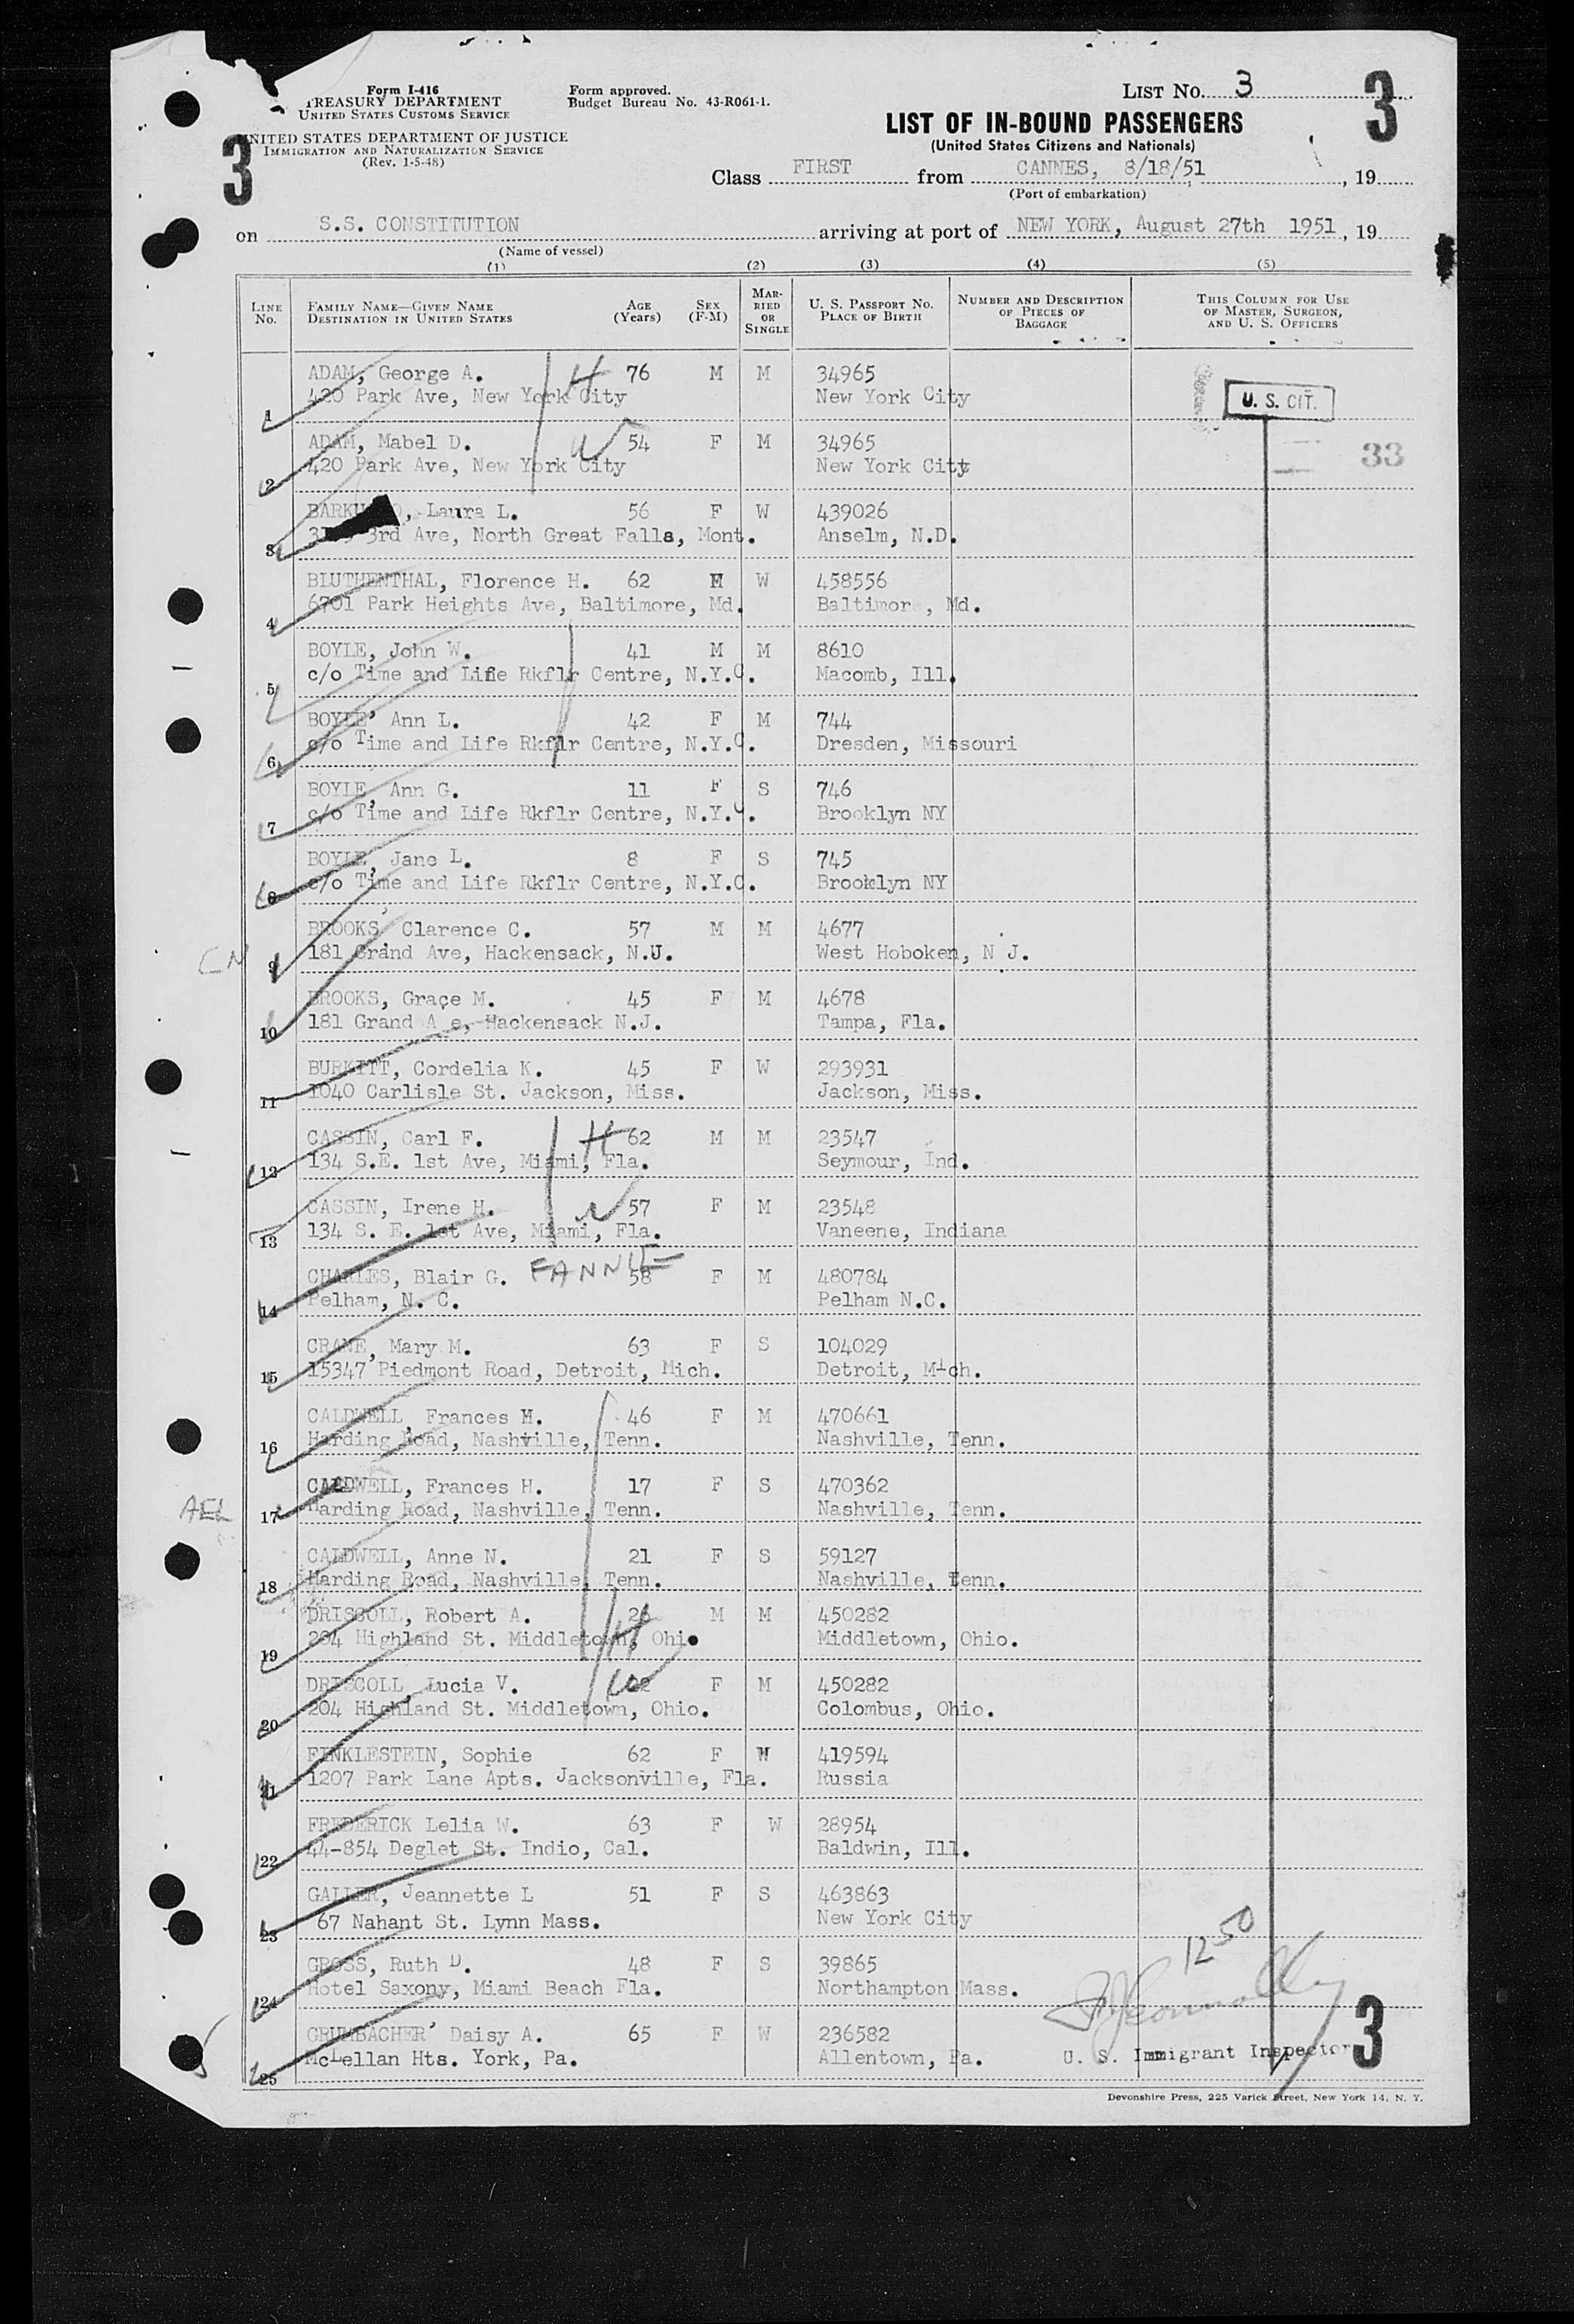 Form I-416
TREASURY DEPARTMENT
UNITED STATES CUSTOMS SERVICE
UNITED STATES DEPARTMENT OF JUSTICE
IMMIGRATION AND NATURALIZATION SERVICE
(Rev. 1-5-48)
Form approved.
Budget Bureau No. 43-R061-1.
LIST NO. 3
3
3
LIST OF IN-BOUND PASSENGERS
(United States Citizens and Nationals)
Class FIRST from CANNES, 8/18/51, 19
(Port of embarkation)
on S.S. CONSTITUTION arriving at port of NEW YORK, August 27th 1951, 19
(Name of vessel)
(1) (2) (3) (4) (5)
LINE NO. FAMILY NAME—GIVEN NAME DESTINATION IN UNITED STATES AGE (Years) SEX (F-M) MARRIED OR SINGLE U. S. PASSPORT NO. PLACE OF BIRTH NUMBER AND DESCRIPTION OF PIECES OF BAGGAGE THIS COLUMN FOR USE OF MASTER, SURGEON, AND U. S. OFFICERS
ADAM, George A. H 76 M M 34965
1 420 Park Ave, New York City New York City U. S. CIT.
ADAM, Mabel D. W 54 F M 34965 33
2 420 Park Ave, New York City New York City
Laura L. 56 F W 439026
3 3rd Ave, North Great Falls, Mont. Anselm, N.D.
BLUTHENTHAL, Florence H. 62 W 458556
4 6701 Park Heights Ave, Baltimore, Md. Baltimor , Md.
BOYLE, John W. 41 M M 8610
5 c/o Time and Life Rkflr Centre, N.Y.C. Macomb, Ill.
BOYLE' Ann L. 42 F M 744
6 c/o Time and Life Rkflr Centre, N.Y.C. Dresden, Missouri
BOYLE, Ann G. 11 F S 746
7 c/o Time and Life Rkflr Centre, N.Y.C. Brooklyn NY
BOYLE, Jane L. 8 F S 745
8 c/o Time and Life Rkflr Centre, N.Y.C. Brooklyn NY
BROOKS, Clarence C. 57 M M 4677
CN 9 181 Grand Ave, Hackensack, N.J. West Hoboken, N J.
BROOKS, Grace M. 45 F M 4678
10 181 Grand A e, Hackensack N.J. Tampa, Fla.
BURKITT, Cordelia K. 45 F W 293931
11 1040 Carlisle St. Jackson, Miss. Jackson, Miss.
CASSIN, Carl F. H 62 M M 23547
12 134 S.E. 1st Ave, Miami, Fla. Seymour, Ind.
CASSIN, Irene H. W 57 F M 23548
13 134 S. E. 1st Ave, Miami, Fla. Vaneene, Indiana
CHARLES, Blair G. FANNIE 58 F M 480784
14 Pelham, N. C. Pelham N.C.
CRANE, Mary M. 63 F S 104029
15 15347 Piedmont Road, Detroit, Mich. Detroit, Mich.
CALDWELL, Frances M. 46 F M 470661
16 Harding Road, Nashville, Tenn. Nashville, Tenn.
CALDWELL, Frances H. 17 F S 470362
AEL 17 Harding Road, Nashville, Tenn. Nashville, Tenn.
CALDWELL, Anne N. 21 F S 59127
18 Harding Road, Nashville, Tenn. Nashville, Tenn.
DRISCOLL, Robert A. 26 M M 450282
19 204 Highland St. Middletown, Ohio H Middletown, Ohio.
DRISCOLL, Lucia V. W F M 450282
20 204 Highland St. Middletown, Ohio. Colombus, Ohio.
FINKLESTEIN, Sophie 62 F 419594
21 1207 Park Lane Apts. Jacksonville, Fla. Russia
FREDERICK Lelia W. 63 F W 28954
22 44-854 Deglet St. Indio, Cal. Baldwin, Ill.
GALLER, Jeannette L 51 F S 463863
23 67 Nahant St. Lynn Mass. New York City
GROSS, Ruth D. 48 F S 39865 1250
24 Hotel Saxony, Miami Beach Fla. Northampton Mass.
GRUMBACHER' Daisy A. 65 F W 236582
25 McLellan Hts. York, Pa. Allentown, Pa. U. S. Immigrant Inspector 3
Devonshire Press, 225 Varick Street, New York 14, N. Y.